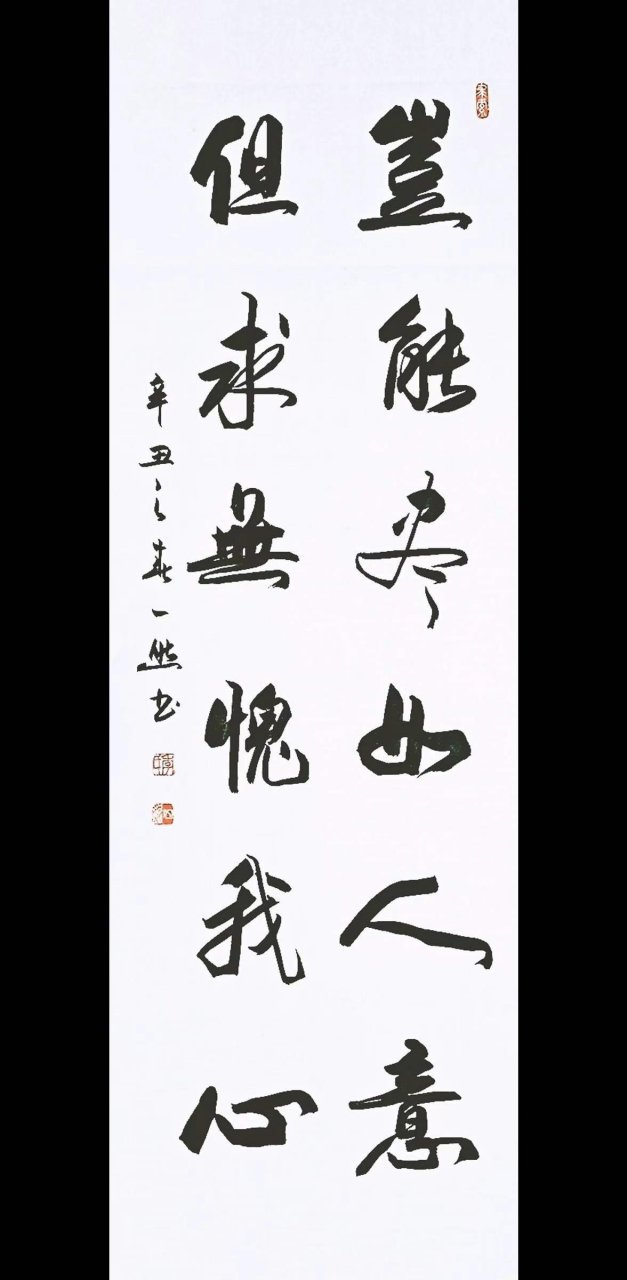 豈能尽如人意
但求無愧我心
辛丑之春一然书